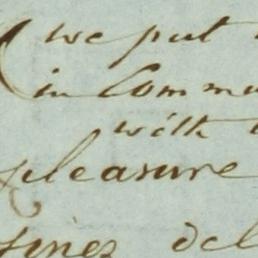 we put
in Comm
with
pleasure